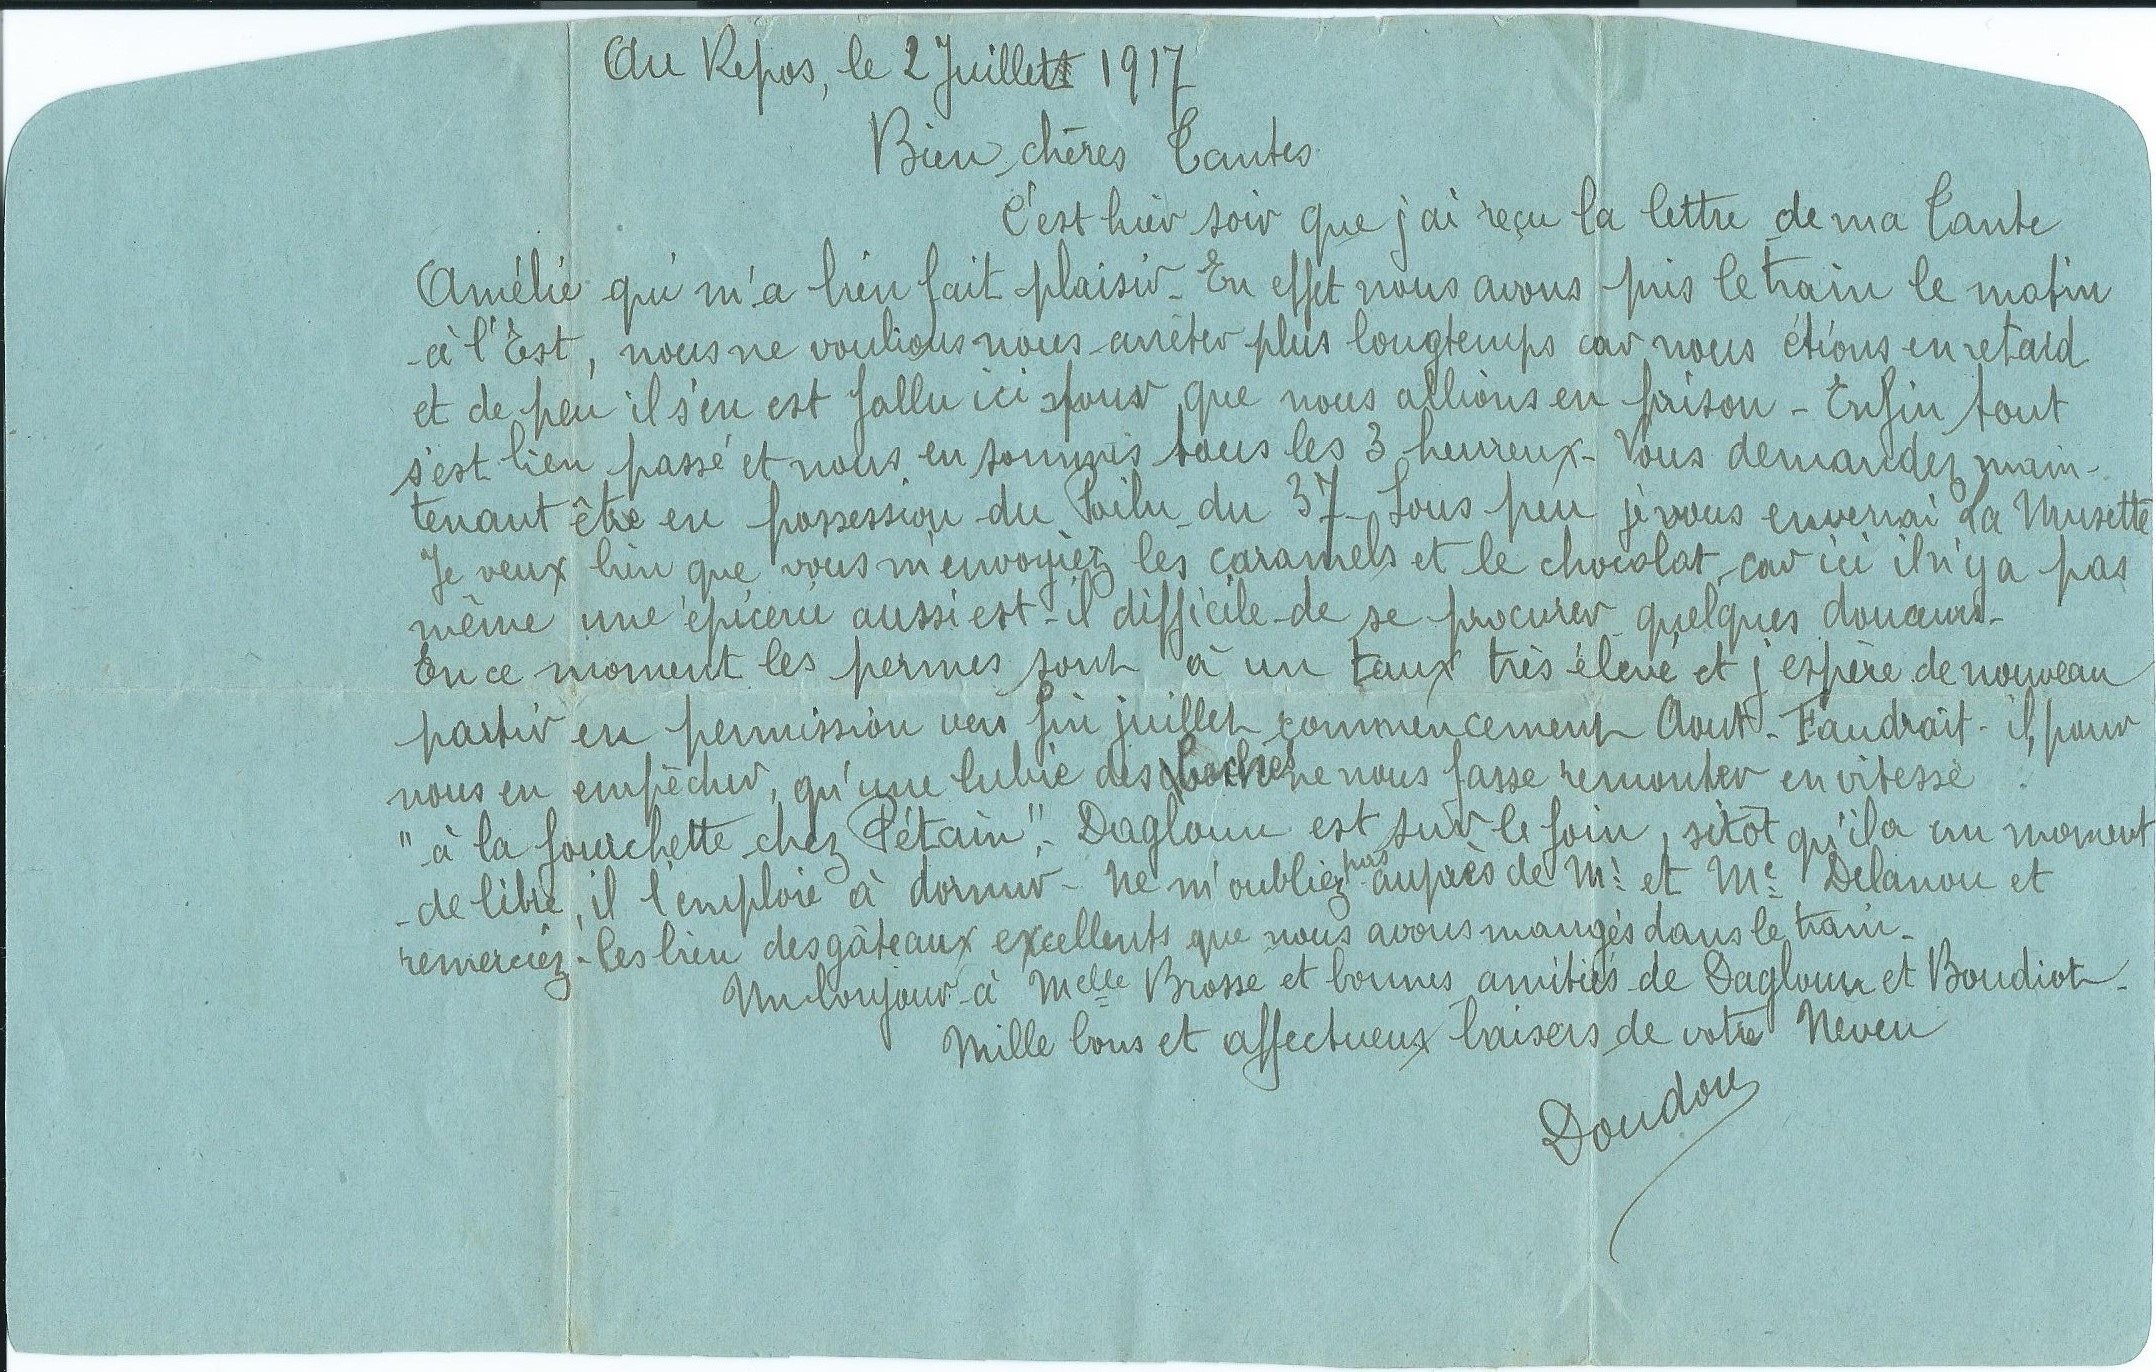 Au Repos, le 2 Juillet 1917
Bien chères Tantes
C'est hier soir que j'ai reçu la lettre de ma Tante
Amélie qui m'a bien fait plaisir - En effet nous avons pris le train le matin
à l'Est, nous ne voulions nous arrêter plus longtemps car nous étions en retard
et de peu il s'en est fallu ici pour que nous allions en prison - Enfin tout
s'est bien passé et nous en sommes tous les 3 heureux - Vous demandez main-
tenant être en possession du Poilu du 37 - Sous peu je vous enverrai la Musette
Je veux bien que vous m'envoyiez les caramels et le chocolat car ici il n'y a pas
même une épicerie aussi est-il difficile de se procurer quelques douceurs -
En ce moment les permes sont à un taux très élevé et j'espère de nouveau
partir en permission vers fin juillet commencement Aout - Faudrait-il, pour
nous en empêcher, qu'une lubie des boches ne nous fasse remonter en vitesse
"à la fourchette chez Pétain" - Dagloun est sur le foin, sitôt qu'il a un moment
de libre, il l'emploie à dormir - Ne m'oubliez pas auprès de Mr et Me Delanou et
remerciez-les bien des gâteaux excellents que nous avons mangés dans le train -
Un bonjour à Melle Brosse et bonnes amitiés de Dagloun et Boudiot -
Mille bons et affectueux baisers de votre Neveu
Doudou